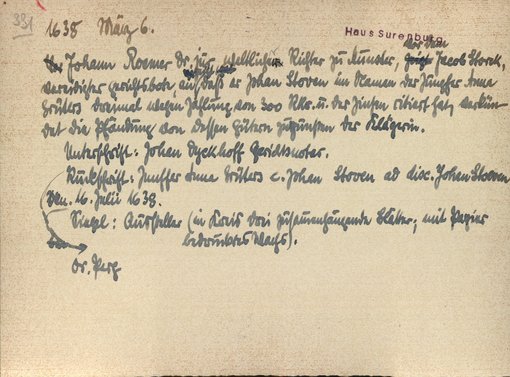 331
1638 März 6.
Haus Surenburg
Johann Roemer Dr. jur. weltlicher Richter zu Münster, vor dem Jacob Storck,
vereidigter Gerichtsbote, aufsagt daß er Johan Stoven im Namen der Jungfer Anna
Grüters dreimal wegen Zahlung von 300 Rtlr. u. der Zinsen citiert hat, verkün-
det die Pfändung von dessen Gütern zugunsten der Klägerin.
Unterschrift: Johan Dyckhoff Gerichtsnotar.
Rückschrift: Junffer Anna Grüters c. Johan Stoven ad dis. Johan Stoven
Den. 16. Julii 1638.
Siegel: Aussteller (im Kreis drei zusammenhängende Blätter, mit Papier
bedrucktes Wachs).
Or. Perg